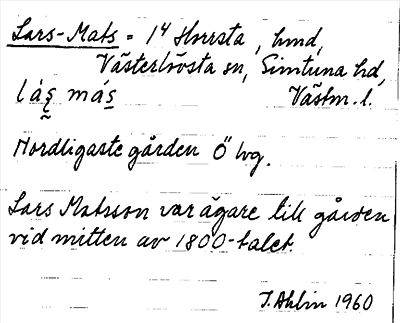 Lars-Mats = 1⁴ Horrsta, hmd,
Västerlövsta sn, Simtuna hd,
lás más Västm. l.
Nordligaste gården Ö lvg.
Lars Matsson var ägare till gården
vid mitten av 1800-talet
J. Ahlin 1960